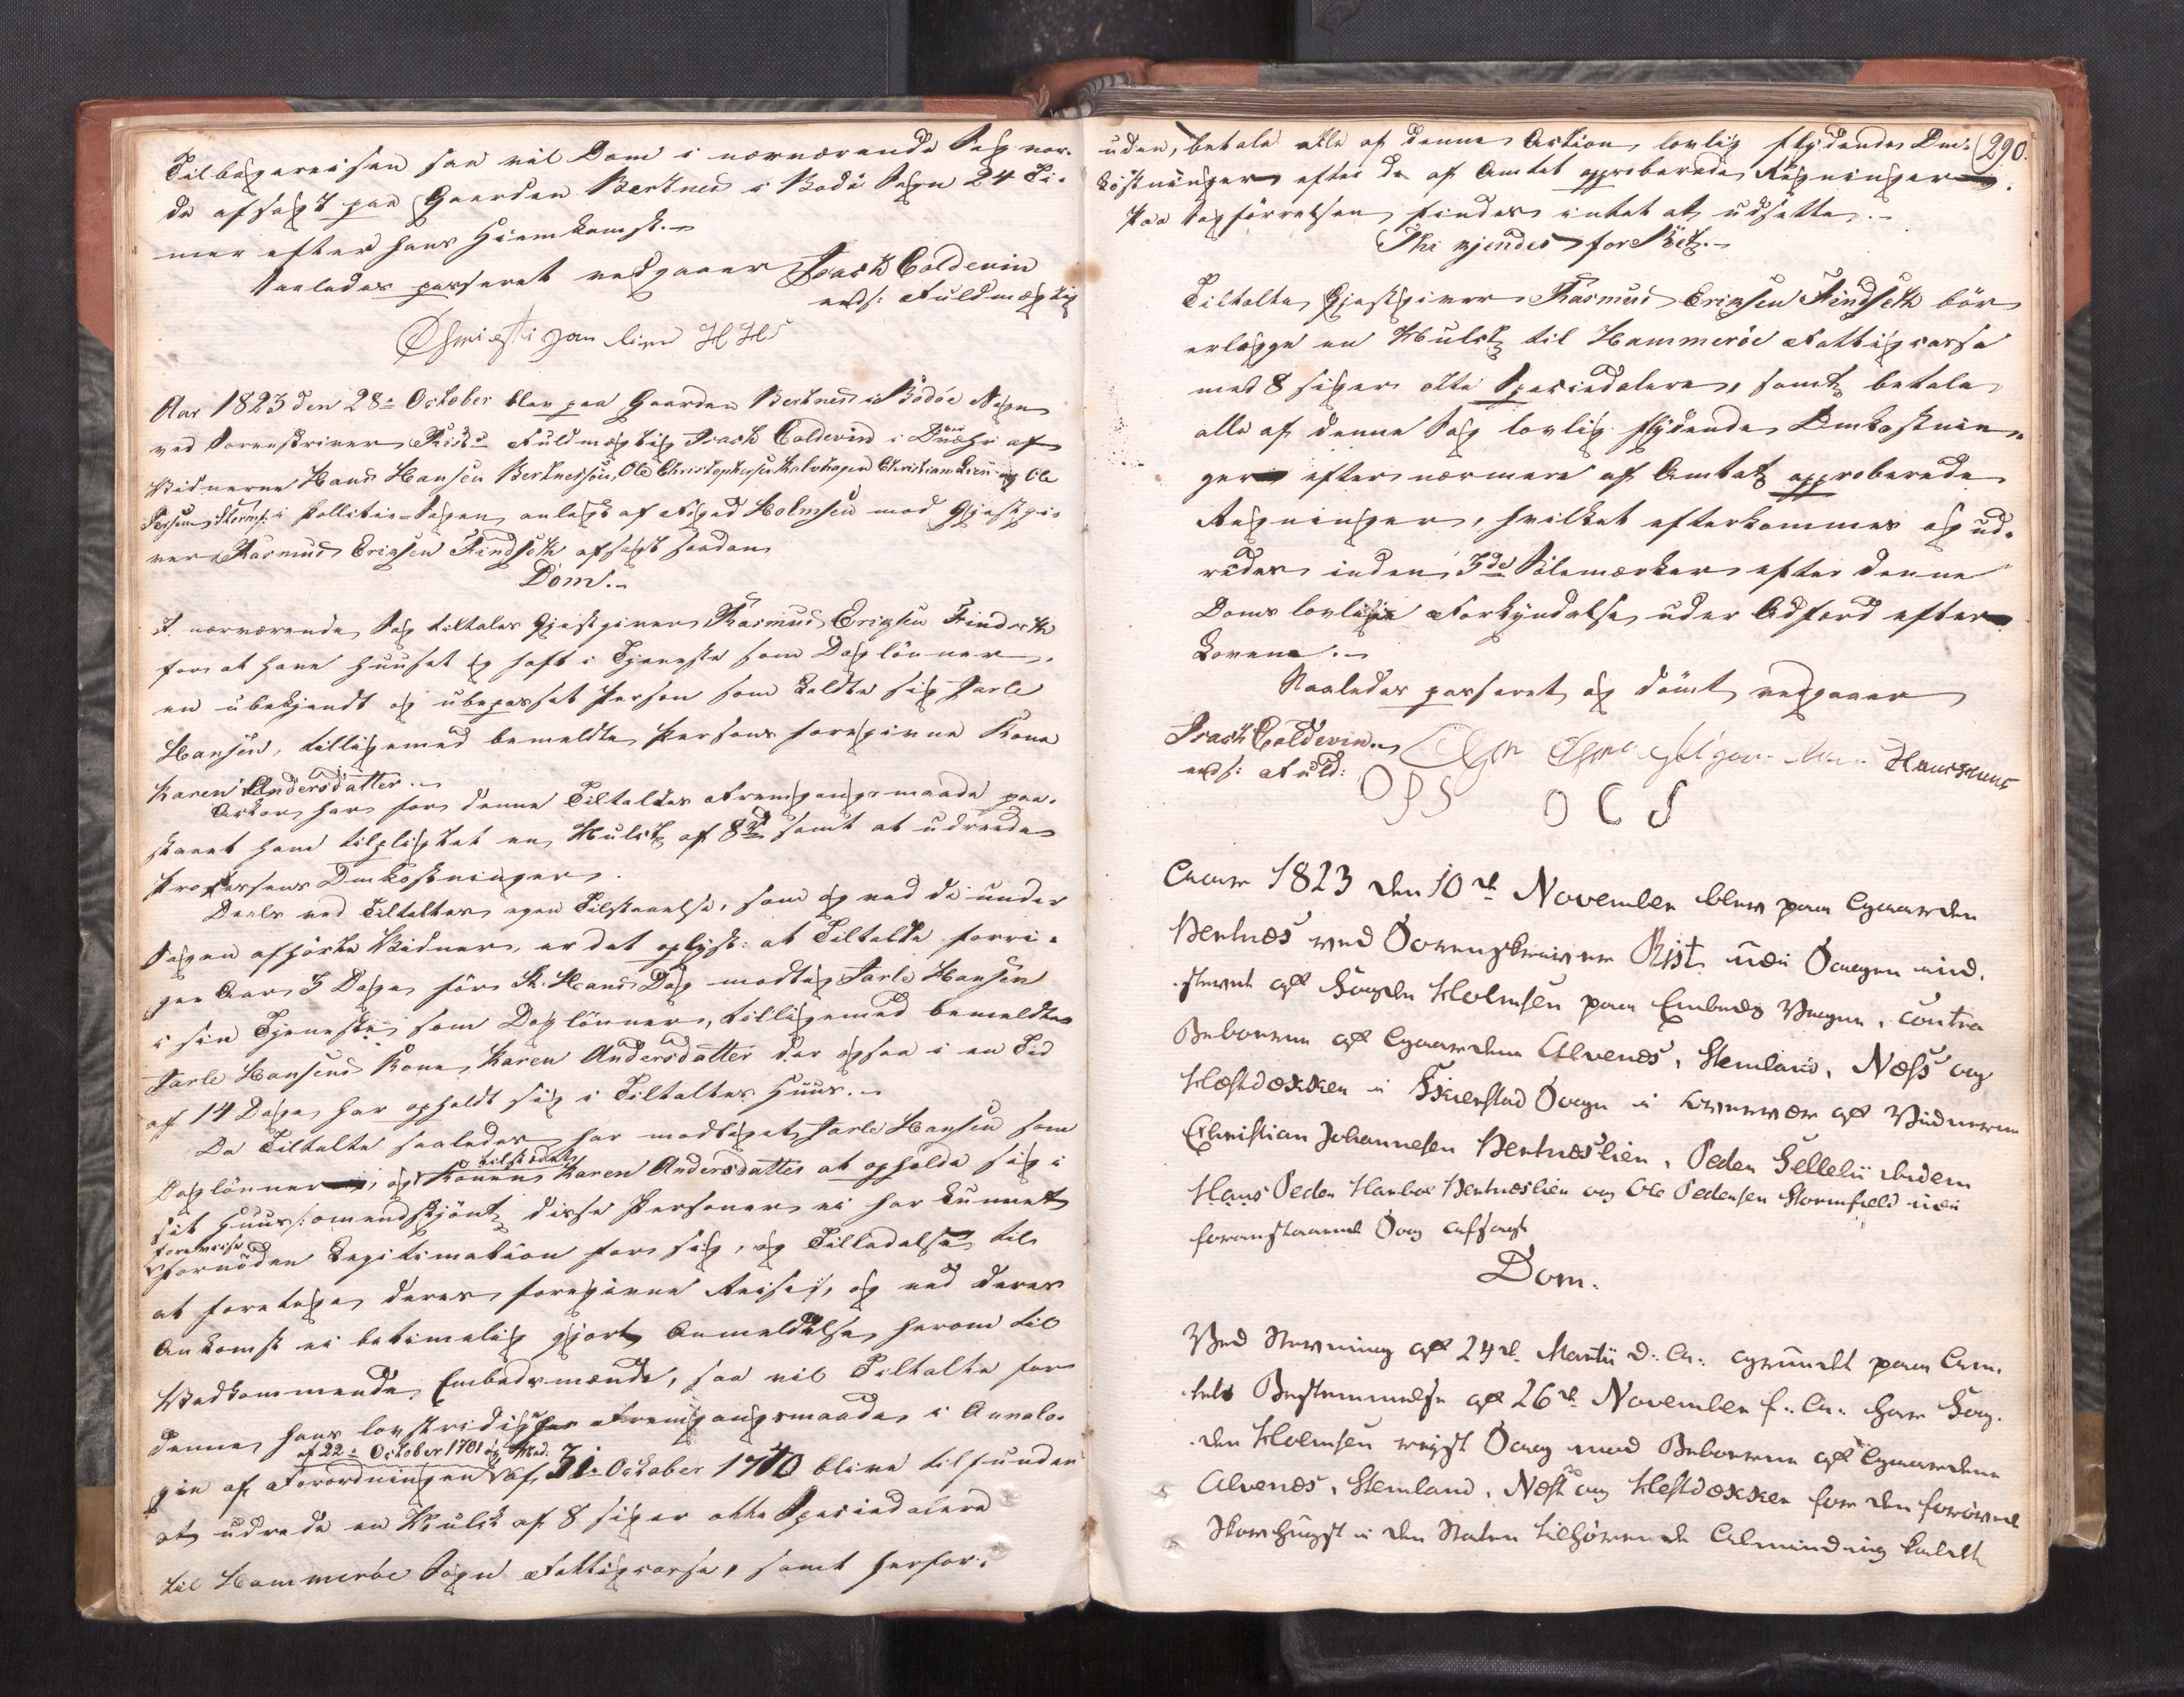 Tilbagereisen saa vil Dom i nærværende Sag vor-
de afsagt paa Gaarden Bertnes i Bodö Sogn 24 Ti-
mer efter hans Hiemkomst.
Saaledes passeret vedgaaer Isach Coldevin
eeds: Fuldmægtig
H H S
Aar 1823 den 28 October blev paa Gaarden Bertnes i Bodöe Sogn
ved Sorenskriver Rist's Fuldmægtig Isach Coldevin i Overvær af
Vidnerne Hans Hansen Bertnessjøn, Ole Christophersen Kalvhagen Christian Lien og Ole
Persen Stormf: i Pollitie-Sagen anlagt af Foged Holmsen mod Gjestgi-
ver Rasmus Erigsen Findseth afsagt saadan
Dom.
I nærværende Sag tiltales Gjestgiver Rasmus Erigsen Findseth
for at have huuset og haft i Tjeneste som Daglönner
en ubekjendt og ubepasset Person som kaldte sig Jarle
Hansen, tilligemed bemeldte Persons foregivne Kone
Karen Andersdatter.
Actor har for denne Tiltaltes Fremgangsmaade paa-
staaet ham tilpligtet en Mulct af 8 Spd samt at udreede
Processens Omkostninger.
Deels ved Tiltaltes egen Tilstaaelse, som og ved de under
Sagen afhörte Vidner, er det oplyst: at Tiltalte forri-
ge Aar 3 Dage för St. Hans Dag modtog Jarle Hansen
i sin Tjeneste som Daglönner, tilligemed bemeldte
Jarle Hansens Kone, Karen Andersdatter der ogsaa i en Tid
af 14 Dage har opholdt sig i Tiltaltes Huus.
Da Tiltalte saaledes har modtaget Jarle Hansen som
Daglönner, og tilstædet Konen Karen Andersdatter at opholde sig i
sit Huus, omendskjönt disse Personer ei har kunnet
forevise fornöden Legitimation for sig, og Tilladelse til
at foretage deres foregivne Reise, og ved deres
Ankomst ei betimelig gjort Anmeldelse herom til
Vedkommende Embedsmænd, saa vil Tiltalte for
denne hans lovstridige Fremgangsmaade i Analo-
gie af Forordningen af 22 October 1701 og Pl. af 31 October 1740 blive tilfunden
at udrede en Mulct af 8 siger otte Speciedalere
til Hammeröe Sogns Fattigcasse, samt herfor-
290.
uden, betale alle af denne Action lovlig flydende Om-
kostninger efter de af Amtet approberede Regninger.
Paa Sagförelsen findes intet at udsette.
Thi kjendes for Ret.
Tiltalte Gjestgiver Rasmus Erigsen Findseth bör
erlægge en Mulct til Hammeröe Fattigcasse
med 8 siger otte Speciedalere, samt betale
alle af denne Sag lovlig flydende Omkostnin-
ger efter nærmere af Amtet approberede
Regninger, hvilket efterkommes og ud-
redes inden 3de Solemærker efter denne
Doms lovlige Forkyndelse under Adfærd efter
Loven.
Saaledes passeret og dömt vedgaaer
Isach Coldevin
eeds: Fuld:
Hans Hans
O P S O C S
Anno 1823 den 10de November blev paa Gaarden
Bertnæs ved Sorenskriver Rist udi Sagen ind-
stevnt aff Fogden Holmsen paa Embeds Vegne, contra
Beboerne aff Gaardene Alvenæs, Stemland, Næss og
Hestdokken i Skierstad Sogn i Overvær aff Vidnerne
Christian Johannesen Bertnæslien, Peder Hellelii ibidem
Hans Peder Hanboe Bertnæslien og Ole Pedersen Stormfield udi
foranstaaende Sag affsagt
Dom.
Ved Stevning aff 24de Martii d: A: grundet paa Am-
tets Bestemmelse aff 26de November f: A: har Fog-
den Holmsen reyst Sag mod Beboerne aff Gaardene
Alvenæs, Stemland, Næss og Hestdokken for den forövede
Skovhugst i den Staten tilhörende Alminding kaldet